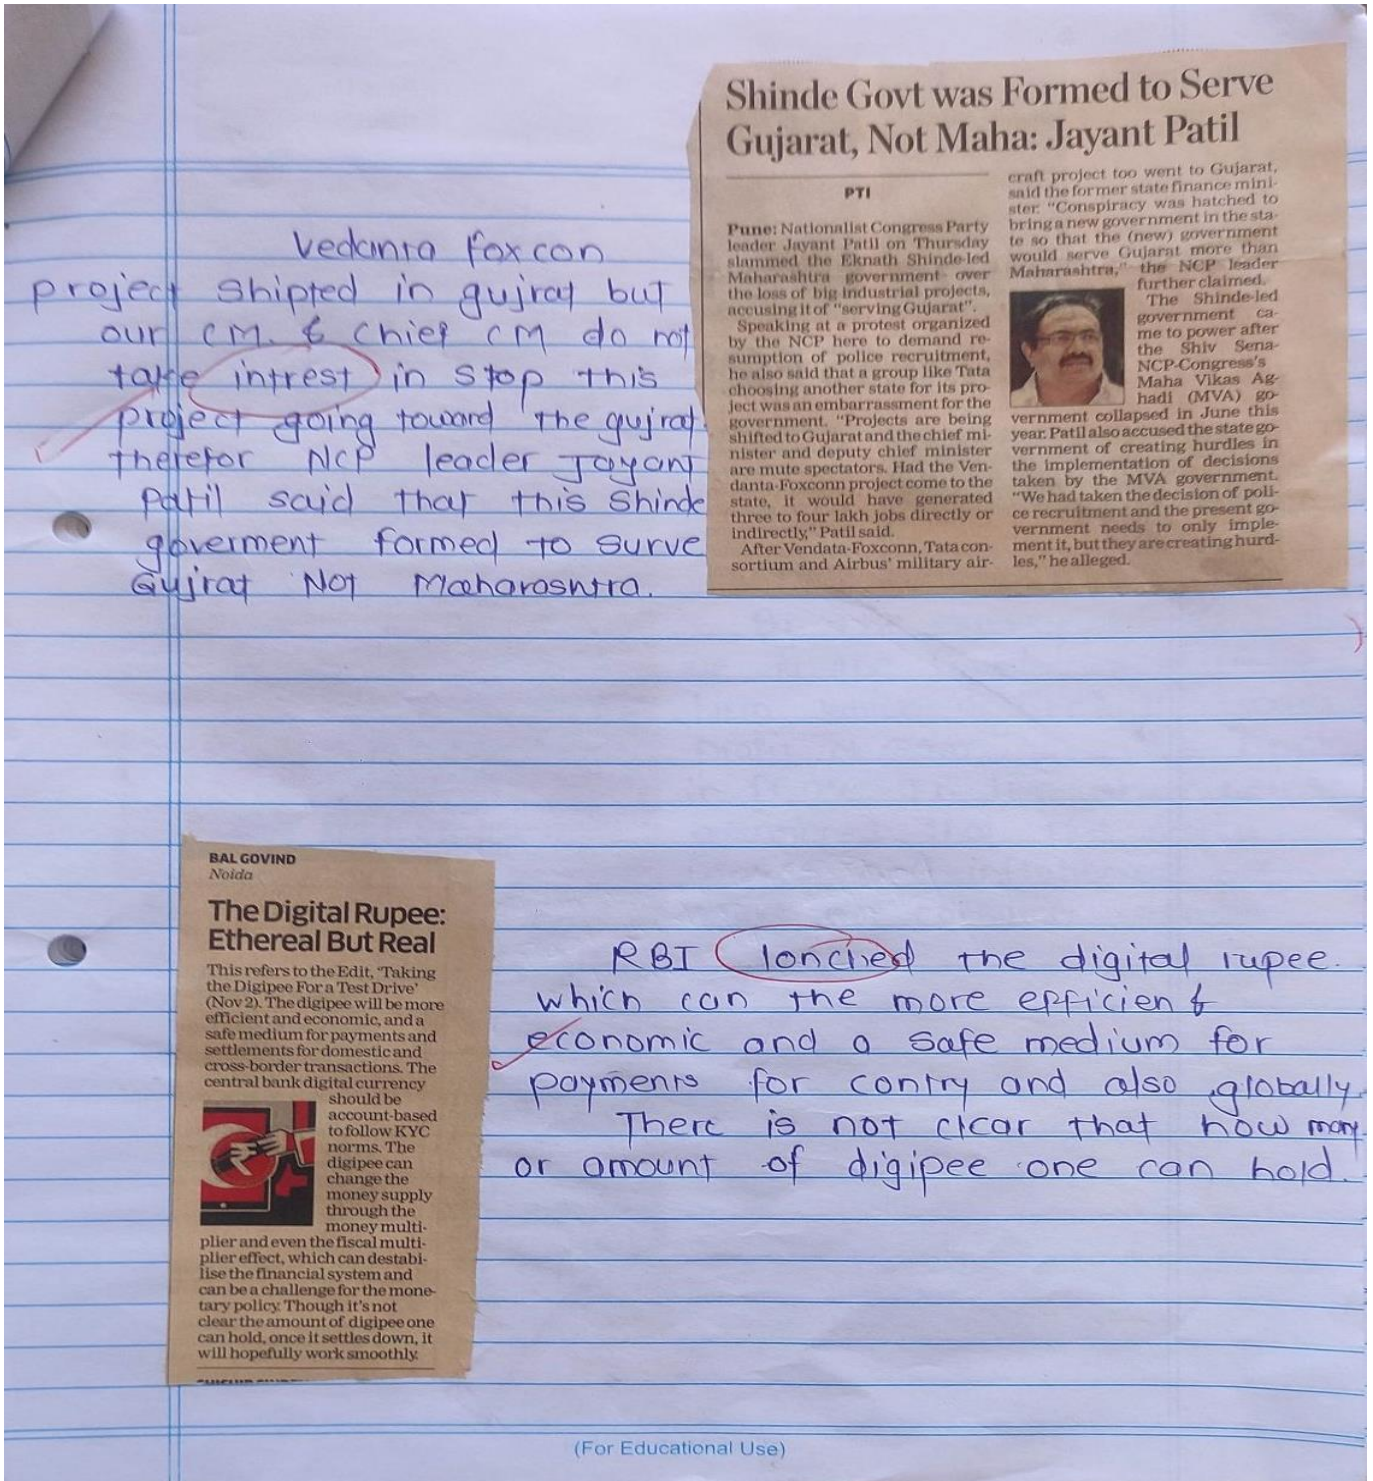 Shinde Govt was Formed to Serve
Gujarat, Not Maha: Jayant Patil
PTI
Pune: Nationalist Congress Party
leader Jayant Patil on Thursday
slammed the Eknath Shinde-led
Maharashtra government over
the loss of big industrial projects,
accusing it of "serving Gujarat".
Speaking at a protest organized
by the NCP here to demand re-
sumption of police recruitment,
he also said that a group like Tata
choosing another state for its pro-
ject was an embarrassment for the
government. "Projects are being
shifted to Gujarat and the chief mi-
nister and deputy chief minister
are mute spectators. Had the Ven-
danta-Foxconn project come to the
state, it would have generated
three to four lakh jobs directly or
indirectly," Patil said.
After Vendata-Foxconn, Tata con-
sortium and Airbus' military air-
craft project too went to Gujarat,
said the former state finance mini-
ster. "Conspiracy was hatched to
bring a new government in the sta-
te so that the (new) government
would serve Gujarat more than
Maharashtra," the NCP leader
further claimed.
The Shinde-led
government ca-
me to power after
the Shiv Sena-
NCP-Congress's
Maha Vikas Ag-
hadi (MVA) go-
vernment collapsed in June this
year. Patil also accused the state go-
vernment of creating hurdles in
the implementation of decisions
taken by the MVA government.
"We had taken the decision of poli-
ce recruitment and the present go-
vernment needs to only imple-
ment it, but they are creating hurd-
les," he alleged.
Vedanta Foxcon
project shipted in gujrat but
our CM. & Chief CM do not
take intrest in stop this
project going toward the gujrat
therefor NCP leader Jayant
Patil said that this Shinde
goverment formed to surve
Gujrat Not Maharashtra.
BAL GOVIND
Noida
The Digital Rupee:
Ethereal But Real
This refers to the Edit, 'Taking
the Digipee For a Test Drive'
(Nov 2). The digipee will be more
efficient and economic, and a
safe medium for payments and
settlements for domestic and
cross-border transactions. The
central bank digital currency
should be
account-based
to follow KYC
norms. The
digipee can
change the
money supply
through the
money multi-
plier and even the fiscal multi-
plier effect, which can destabi-
lise the financial system and
can be a challenge for the mone-
tary policy. Though it's not
clear the amount of digipee one
can hold, once it settles down, it
will hopefully work smoothly.
RBI lonched the digital rupee.
which can the more efficient &
economic and a safe medium for
payments for contry and also globally
There is not clear that how many
or amount of digipee one can hold.
(For Educational Use)